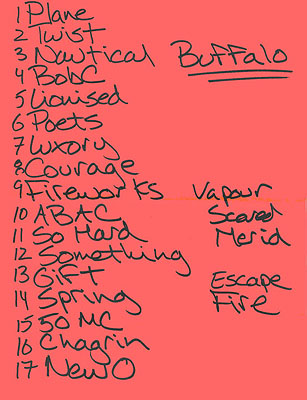 1 Plane
2 Twist
3 Nautical
Buffalo
4 BobC
5 Lionised
6 Poets
7 Luxory
8 Courage
9 Fireworks
Vapour
10 ABAC
Scared
11 So Hard
Merid
12 Something
13 Gift
Escape
14 Spring
Fire
15 50 MC
16 Chagrin
17 New O